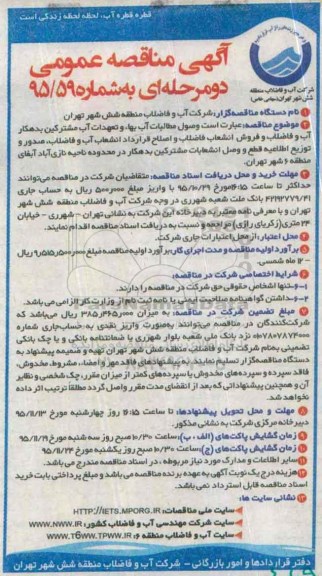 قطره قطره آب، لحظه لحظه زندگی است
آگهی مناقصه عمومی
دومرحله‌ای به‌شماره ۹۵/۵۹
شرکت آب و فاضلاب منطقه
شش شهر تهران (سهامی خاص)
۱ نام دستگاه مناقصه‌گزار: شرکت آب و فاضلاب منطقه شش شهر تهران
۲ موضوع مناقصه: عبارت است وصول مطالبات آب بها، و تعهدات آب مشترکین بدهکار
آب و فاضلاب و فروش انشعاب فاضلاب و اصلاح قرارداد انشعاب آب و فاضلاب، صدور و
توزیع اطلاعیه قطع و وصل انشعابات مشترکین بدهکار در محدوده ناحیه نازی‌آباد آبفای
منطقه ۶ شهر تهران.
۳ مهلت خرید و محل دریافت اسناد مناقصه: متقاضیان شرکت در مناقصه می‌توانند
حداکثر تا ساعت ۱۶:۱۵ مورخ ۹۵/۱۰/۲۹ با واریز مبلغ ۵۰۰٫۰۰۰ ریال به حساب جاری
۴۲۱۹۲۷۷۹/۴۱ بانک ملت شعبه شهرری در وجه شرکت آب و فاضلاب منطقه شش شهر
تهران و با معرفی نامه معتبر به دبیرخانه این شرکت به نشانی تهران – شهرری – خیابان
۲۴ متری (زکریای رازی) مراجعه و نسبت به دریافت اسناد مناقصه اقدام نمایند.
۴ محل اعتبار: از محل اعتبارات جاری شرکت.
۵ برآورد اولیه مناقصه و مدت اجرای کار: برآورد اولیه مناقصه مبلغ ۹٫۵۱۵٫۰۰۰٫۰۰۰ ریال
– ۱۲ ماه شمسی.
۶ شرایط اختصاصی شرکت در مناقصه:
۶-۱- تنها اشخاص حقوقی حق شرکت در مناقصه را دارند.
۶-۲- داشتن گواهینامه صلاحیت ایمنی یا نامه ثبت نام از وزارت کار الزامی می‌باشد.
۷ مبلغ تضمین شرکت در مناقصه: به میزان ۳۸۵٫۴۶۵٫۰۰۰ ریال می‌باشد که
شرکت‌کنندگان در مناقصه می‌توانند به‌صورت واریز نقدی به حساب‌جاری شماره
۰۱۰۷۸۰۷۸۷۴۰۰۰ نزد بانک ملی شعبه بلوار شهرری یا ضمانتنامه بانکی و یا چک بانکی
تضمینی به‌نام شرکت آب و فاضلاب منطقه شش شهر تهران تهیه و ضمیمه پیشنهاد به
دستگاه مناقصه‌گزار تسلیم نمایند. به پیشنهادهای فاقد مهر و امضاء، مشروط، مخدوش،
فاقد سپرده و سپرده‌های مخدوش یا سپرده‌های کمتر از میزان مقرر، چک شخصی و نظایر
آن و همچنین پیشنهاداتی که بعد از انقضای مدت مقرر واصل گردد مطلقا ترتیب اثر داده
نخواهد شد.
۸ مهلت و محل تحویل پیشنهادها: تا ساعت ۱۶:۱۵ روز چهارشنبه مورخ ۹۵/۱۱/۱۳
دبیرخانه مرکزی شرکت به نشانی مذکور.
۹ زمان گشایش پاکت‌های (الف - ب): ساعت ۱۰/۳۰ صبح روز سه شنبه مورخ ۹۵/۱۱/۱۹
۱۰ زمان گشایش پاکت‌های (ج): ساعت ۱۰/۳۰ صبح روز یکشنبه مورخ ۹۵/۱۱/۲۴
۱۱ سایر اطلاعات و مدارک مورد نیاز مربوطه، در اسناد مناقصه مندرج می باشد.
۱۲ هزینه درج یک نوبت آگهی به عهده برنده مناقصه می‌باشد و مبلغ پرداختی بابت خرید
اسناد مناقصه قابل استرداد نمی‌باشد.
۱۳ نشانی سایت ها:
سایت ملی مناقصات: HTTP://IETS.MPORG.IR
سایت شرکت مهندسی آب و فاضلاب کشور: WWW.NWW.IR
سایت آب و فاضلاب منطقه ۶: WWW.T6WW.TPWW.IR
دفتر قراردادها و امور بازرگانی – شرکت آب و فاضلاب منطقه شش شهر تهران